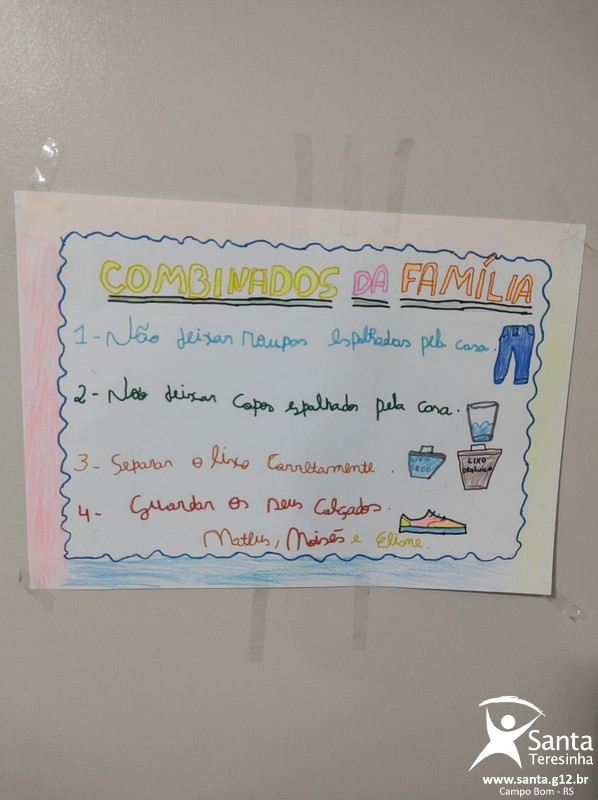 COMBINADOS DA FAMÍLIA
1 - Não deixar roupas espalhadas pela casa.
2 - Não deixar copos espalhados pela casa.
3 - Separar o lixo Corretamente.
LIXO SECO
LIXO ORGÂNICO
4 - Guardar os seus calçados.
Matheus, Moisés e Eliane.
Santa
Teresinha
www.santa.g12.br
Campo Bom - RS